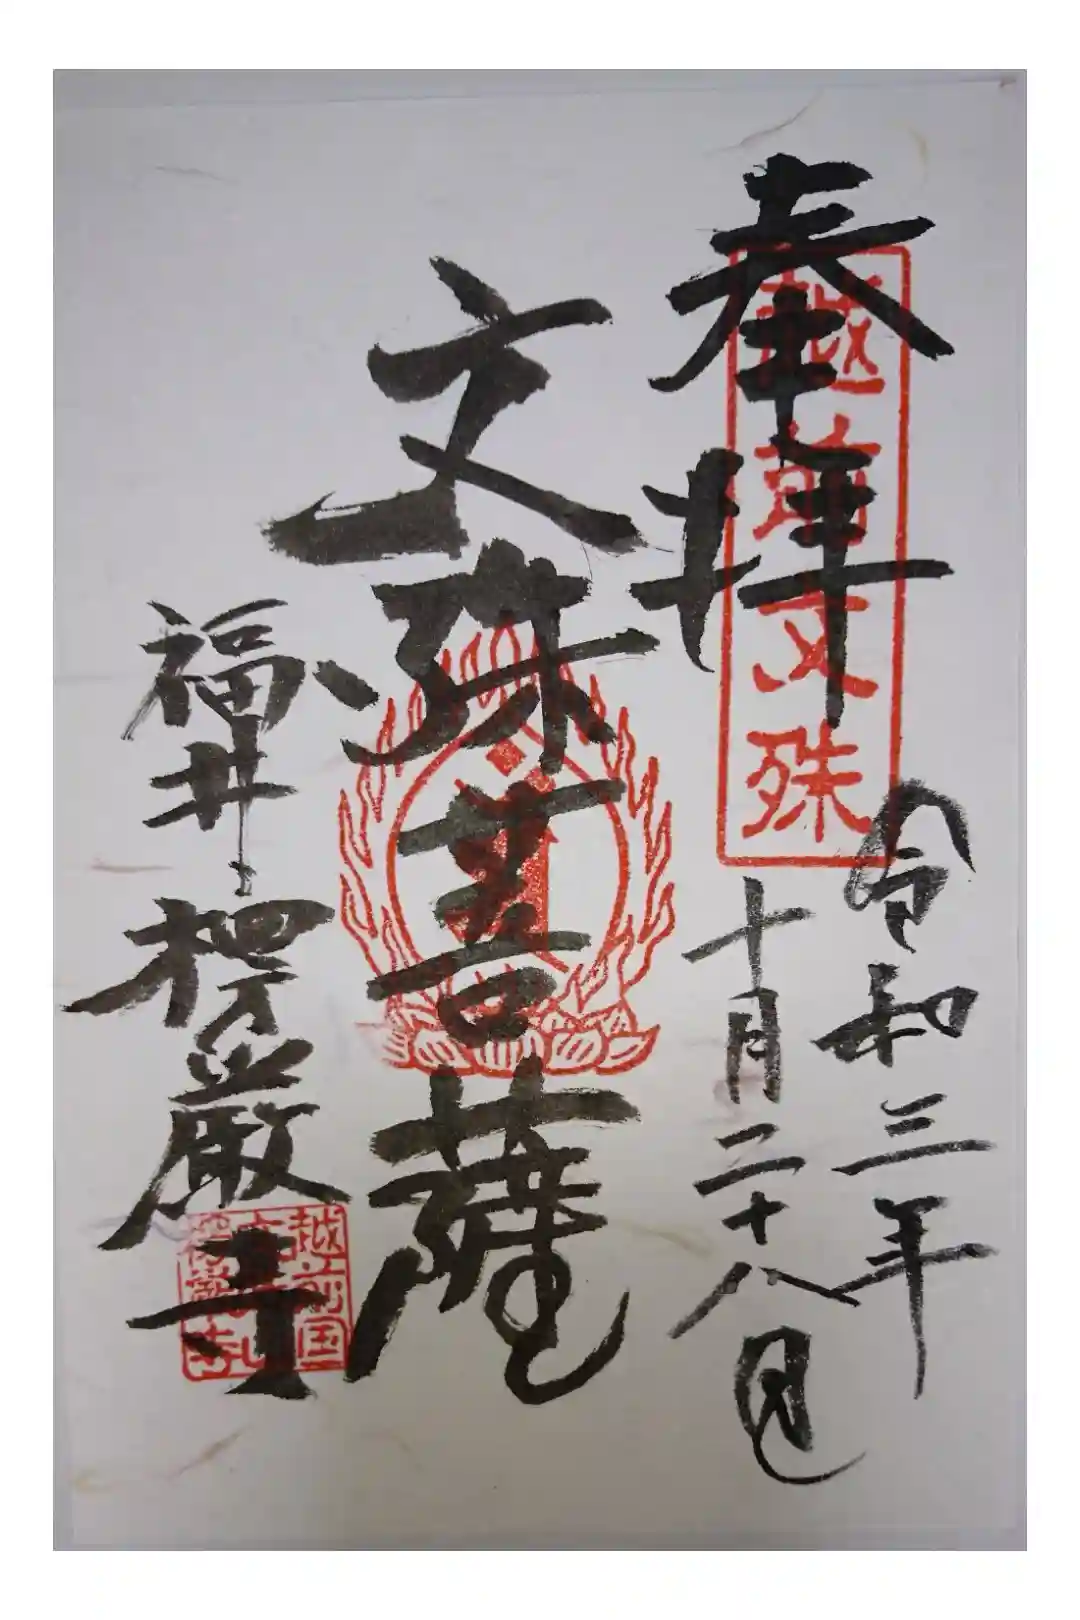 奉拝
越前文殊
令和三年
十月二十八日
文殊菩薩
福井 楞嚴寺
越前国
楞嚴寺